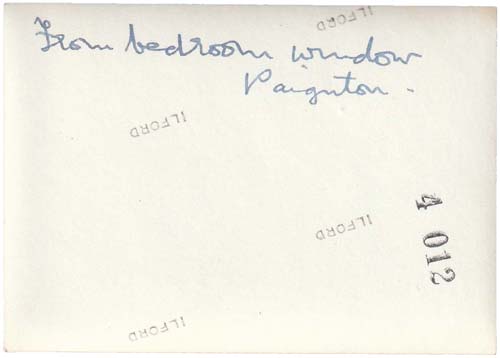 From bedroom window
Paignton.
ILFORD
ILFORD
ILFORD
ILFORD
4 012